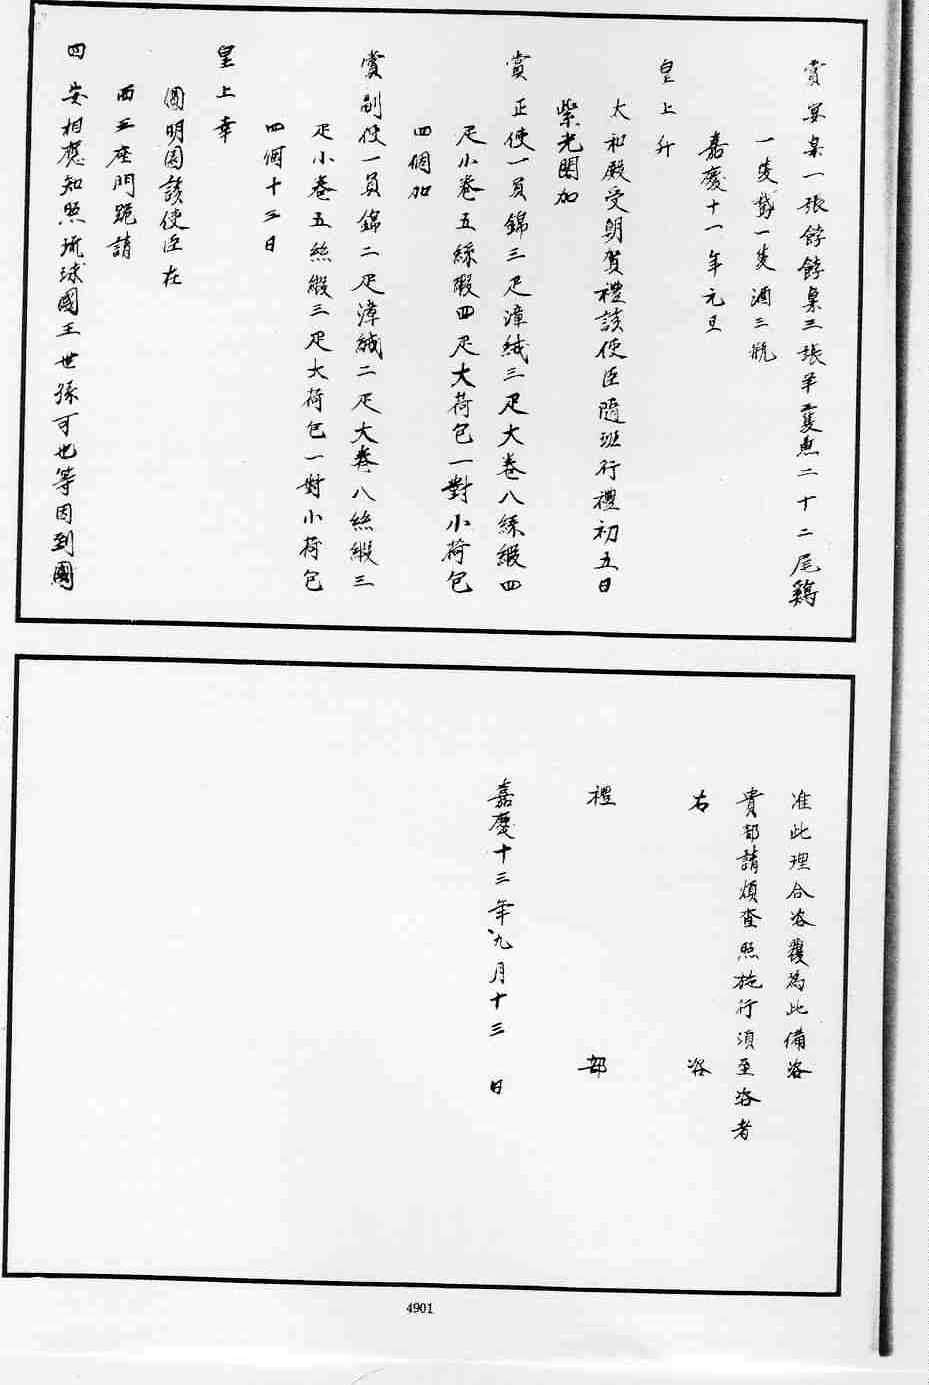 賞宴桌一張餑餑桌三張羊二隻魚二十二尾鷄
一隻鵞一隻酒三瓶
嘉慶十一年元旦
皇上升
太和殿受朝賀禮該使臣隨班行禮初五日
紫光閣加
賞正使一員錦三疋漳絨三疋大卷八絲緞四
疋小卷五絲緞四疋大荷包一對小荷包
四個加
賞副使一員錦二疋漳絨二疋大卷八絲緞三
疋小卷五絲緞三疋大荷包一對小荷包
四個十三日
皇上幸
圓明園該使臣在
西三座門跪請
聖安相應知照琉球國王世孫可也等因到國
准此理合咨覆為此備咨
貴部請煩查照施行須至咨者
右咨
禮部
嘉慶十三年九月十三日
4901